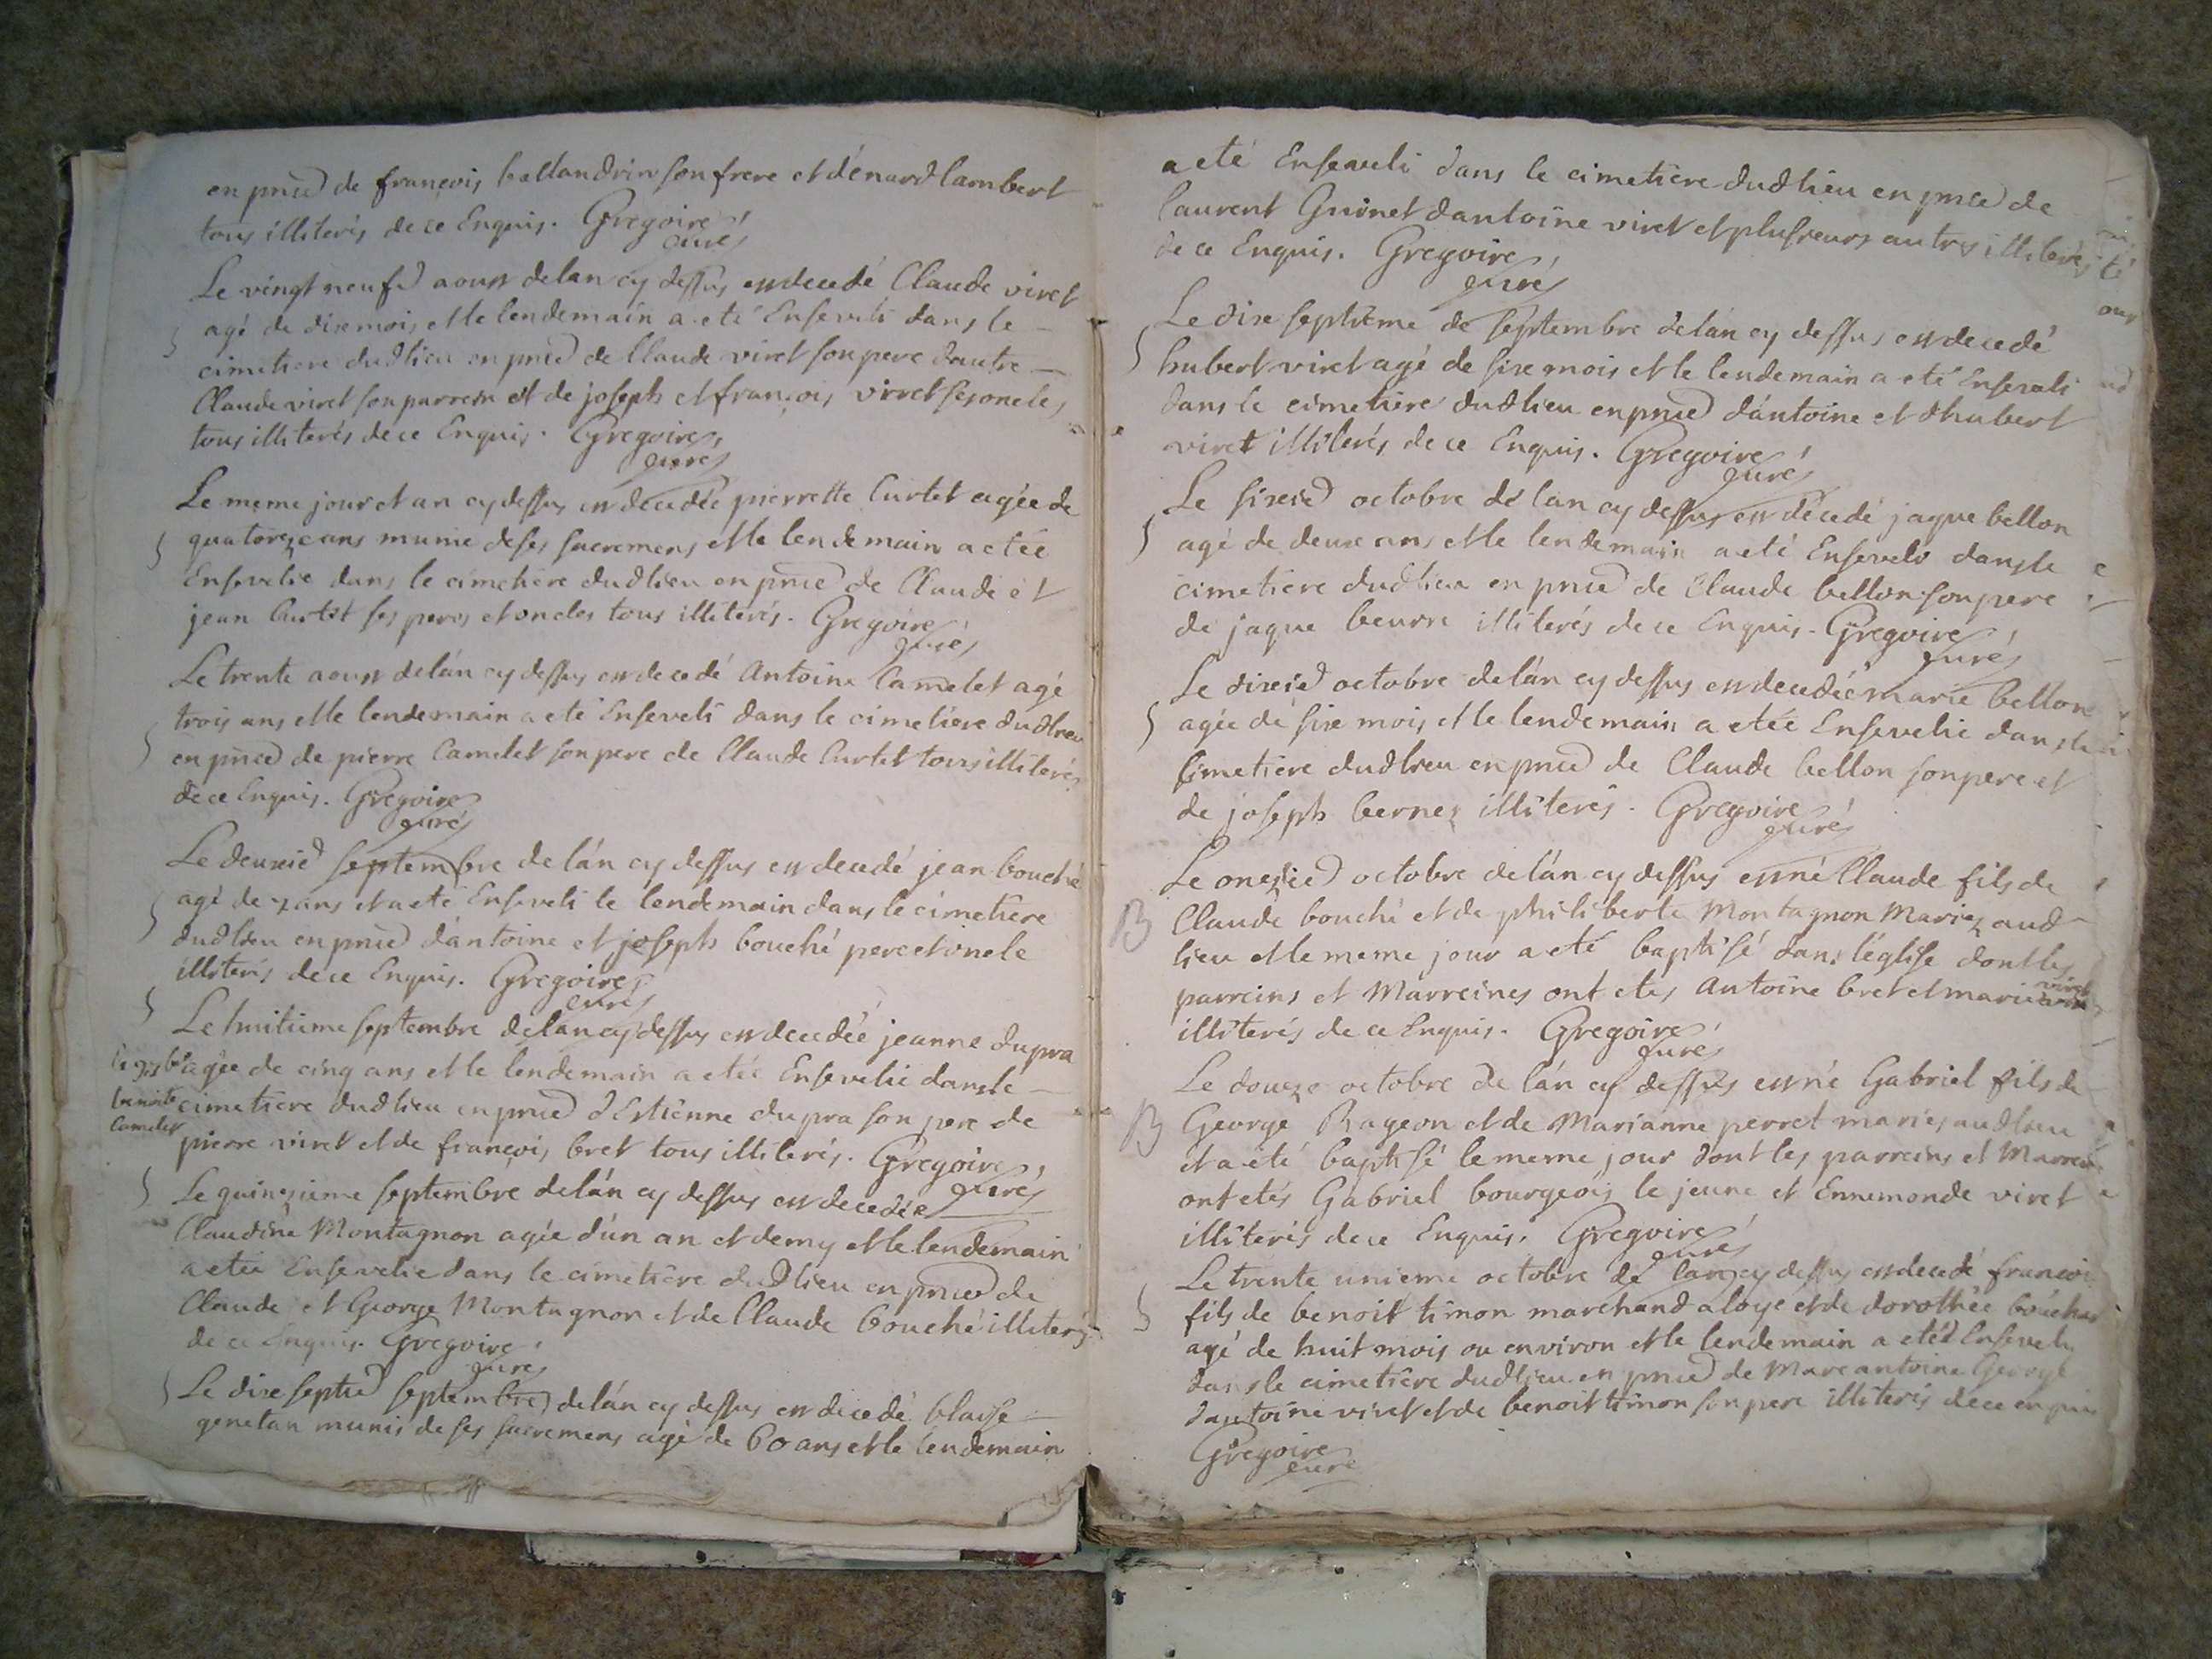 en pnce de françois ballandrin son frere et dénard lambert
tous illiterés de ce Enquis. Gregoire
curé
Le vingt neufe aoust de lan cy dessus est decedé Claude viret
agé de dix mois et le lendemain a eté Enseveli dans le
cimetiere dud lieu en pnce de Claude viret son pere dautre
Claude viret son parrein et de joseph et françois virret ses oncles
tous illiterés de ce Enquis. Gregoire
curé
Le meme jour et an cy dessus est decedée pierrette Curtet agée de
quatorze ans munie de ses sacremens et le lendemain a etée
Ensevelie dans le cimetiere dud lieu en pnce de Claude et
jean Curtet ses peres et oncles tous illiterés. Gregoire
curé
Le trente aoust de lán cy dessus est decedé Antoine Camelet agé
trois ans et le lendemain a eté Enseveli dans le cimetiere dud lieu
en pnce de pierre Camelet son pere de Claude Curtet tous illiterés
de ce Enquis. Gregoire
curé
Le deuxie septembre de lán cy dessus est decedé jean bouché
agé de ans et a eté Enseveli le lendemain dans le cimetiere
dud lieu en pnce dántoine et joseph bouché pere et oncle
illiterés de ce Enquis. Gregoire
curé
Le huitieme septembre de lan cy dessus est decedée jeanne dupra
agée de cinq ans et le lendemain a etée Ensevelie dans le
cimetiere dud lieu en pnce dEstienne dupra son pere de
Camelet
pierre viret et de françois bret tous illiterés. Gregoire
curé
Le quinzieme septembre de lán cy dessus est decedée
Claudine Montagnon agée dún an et demy et le lendemain
a etée Ensevelie dans le cimetiere dud lieu en pnce de
Claude et George Montagnon et de Claude bouché illiterés
de ce Enquis. Gregoire
curé
Le dix septie septembre de lán cy dessus est decedé blaise
genetan munis de ses sacremens agé de 60 ans et le lendemain
a eté Enseveli dans le cimetiere dud lieu en pnce de
laurent Guinet dantoine viret et plusieurs autres illiterés
de ce Enquis. Gregoire
curé
Le dix septieme de septembre de lán cy dessus est decedé
hubert viret agé de six mois et le lendemain a eté Enseveli
dans le cimetiere dud lieu en pnce dántoine et dhubert
viret illiterés de ce Enquis. Gregoire
curé
Le sixie octobre de lan cy dessus est decedé jaque bellon
agé de deux ans et le lendemain a eté Enseveli dans le
cimetiere dud lieu en pnce de Claude bellon son pere
de jaque beurre illiterés de ce Enquis. Gregoire
curé
Le dixie octobre de lán cy dessus est decedée marie bellon
agée de six mois et le lendemain a etée Ensevelie dans le
Cimetiere dud lieu en pnce de Claude bellon son pere et
de joseph bernez illiterés. Gregoire
curé
Le onzie octobre de lán cy dessus est né Claude fils de
B Claude bouché et de philiberte Montagnon Mariez aud
lieu et le meme jour a eté baptisé dans léglise dont les
parreins et Marreines ont etés Antoine bret et marie viret
illiterés de ce Enquis. Gregoire
curé
Le douze octobre de lán cy dessus est né Gabriel fils de
B George Rageon et de Marianne perret mariés aud lieu
et a eté baptisé le meme jour dont les parreins et Marreine
ont etés Gabriel bourgeois le jeune et Ennemonde viret
illiterés de ce Enquis. Gregoire
curé
Le trente unieme octobre de lan cy dessus est decedé françois
fils de benoit timon marchand a loyé et de dorothée
agé de huit mois ou environ et le lendemain a eté Enseveli
dans le cimetiere dud lieu en pnce de Marc antoine George
dantoine viret et de benoit timon son pere illiterés de ce enquis
Gregoire
curé